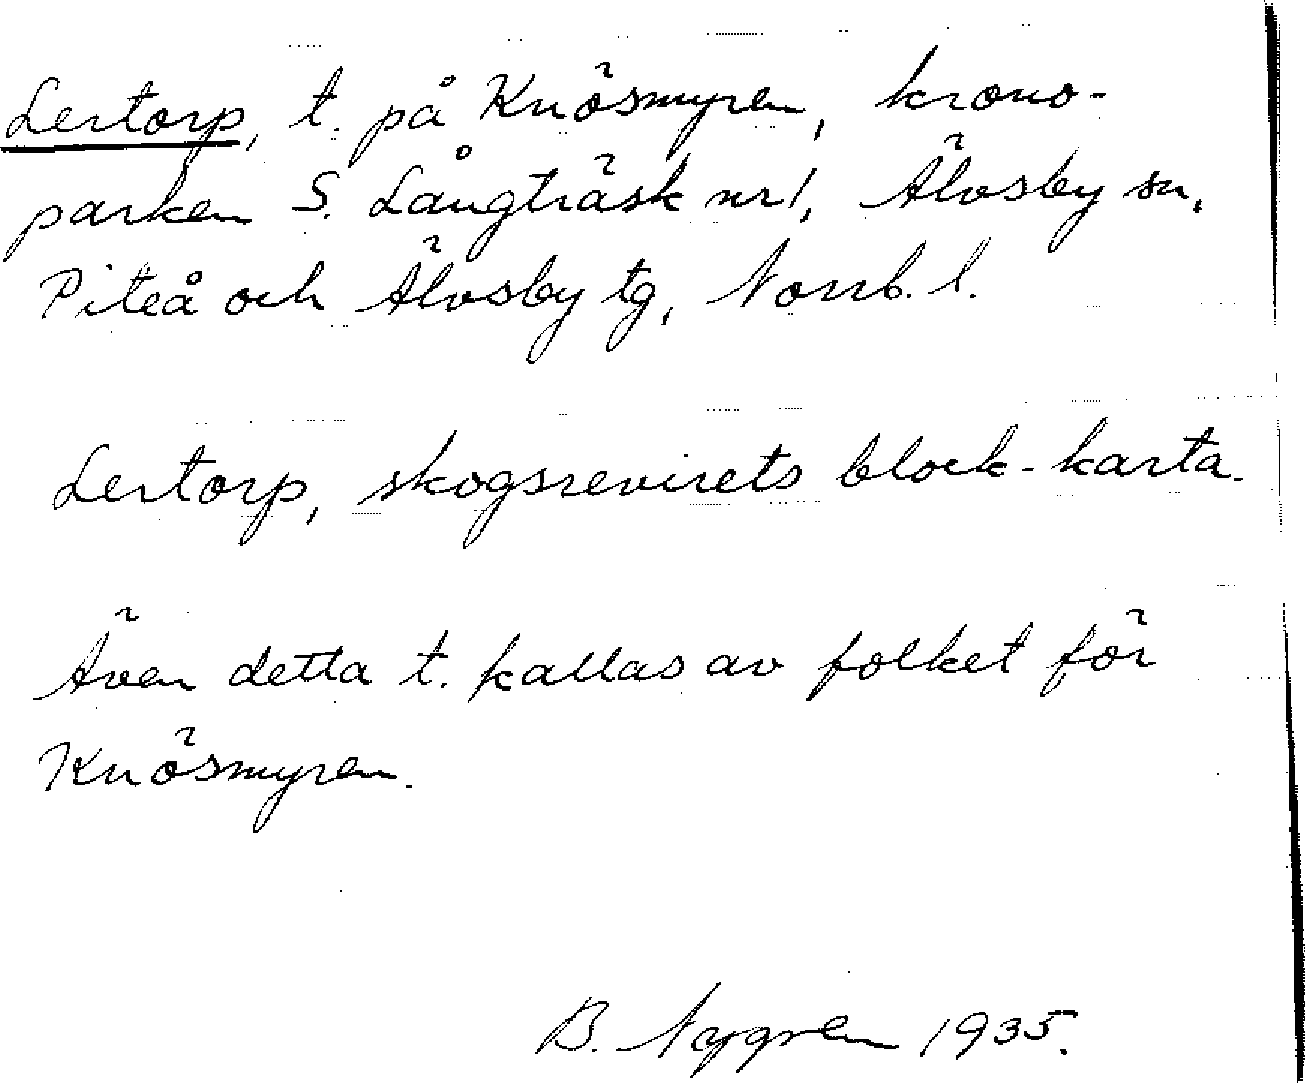 Lertorp, t. på Knösmyren, krono-
parken S. Långträsk nr 1, Älvsby sn,
Piteå och Älvsby tg, Norrb. l.
Lertorp, skogsrevirets block-karta.
Även detta t. kallas av folket för
Knösmyren.
B. Nygren 1935.